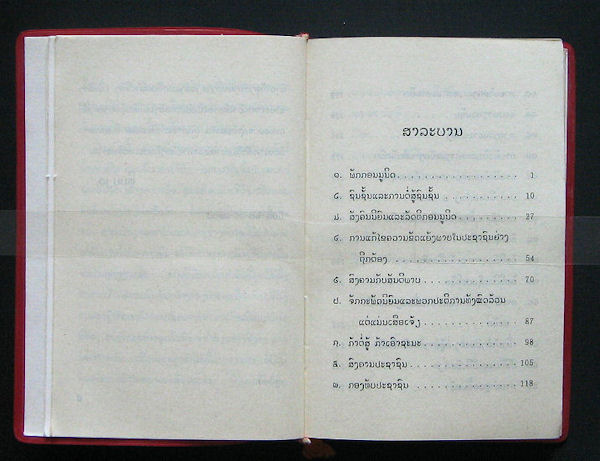 ສາລະບານ
໑. ພັກກອມມູນິດ 1
໒. ຊົນຊັ້ນແລະການຕໍ່ສູ້ຊົນຊັ້ນ 10
໓. ສັງຄົມນິຍົມແລະລັດທິກອມມູນິດ 27
໔. ການແກ້ໄຂຄວາມຂັດແຍ້ງພາຍໃນປະຊາຊົນຢ່າງ
ຖືກຕ້ອງ 54
໕. ສົງຄາມກັບສັນຕິພາບ 70
໖. ຈັກກະພັດນິຍົມແລະພວກປະຕິການທັງໝົດລ້ວນ
ແຕ່ແມ່ນເສືອເຈ້ຽ 87
໗. ກ້າຕໍ່ສູ້ ກ້າເອົາຊະນະ 98
໘. ສົງຄາມປະຊາຊົນ 105
໙. ກອງທັບປະຊາຊົນ 118